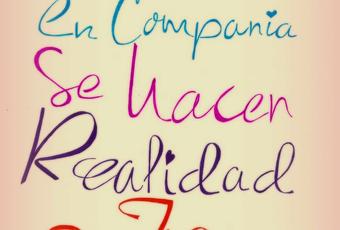 en Compania
Se hacen
Realidad